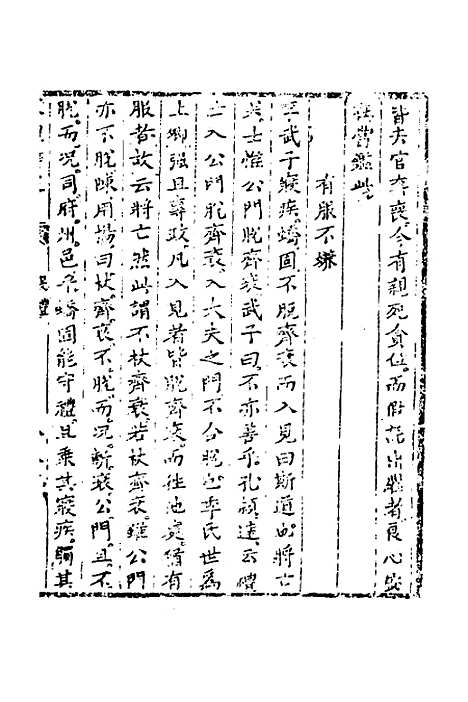 皆去官奔喪今有親死貪位而出繼者良心安
在當鑑此
有服不嫌
季武子寢疾蟜固不脫齊衰而入見曰斯道也將亡
矣士惟公門脫齊衰武子曰不亦善乎孔穎達云禮
士入公門脫齊衰入大夫之門不合脫也季氏世為
上卿強且專政凡入見者皆脫齊衰而往他處猶有
服者故云將亡然此謂不杖齊衰若杖齊衰雖公門
亦不脫陳用揚曰杖齊衰不脫而况斬衰公門且不
脫而况司府州邑乎蟜固能守禮且乘其寢疾其